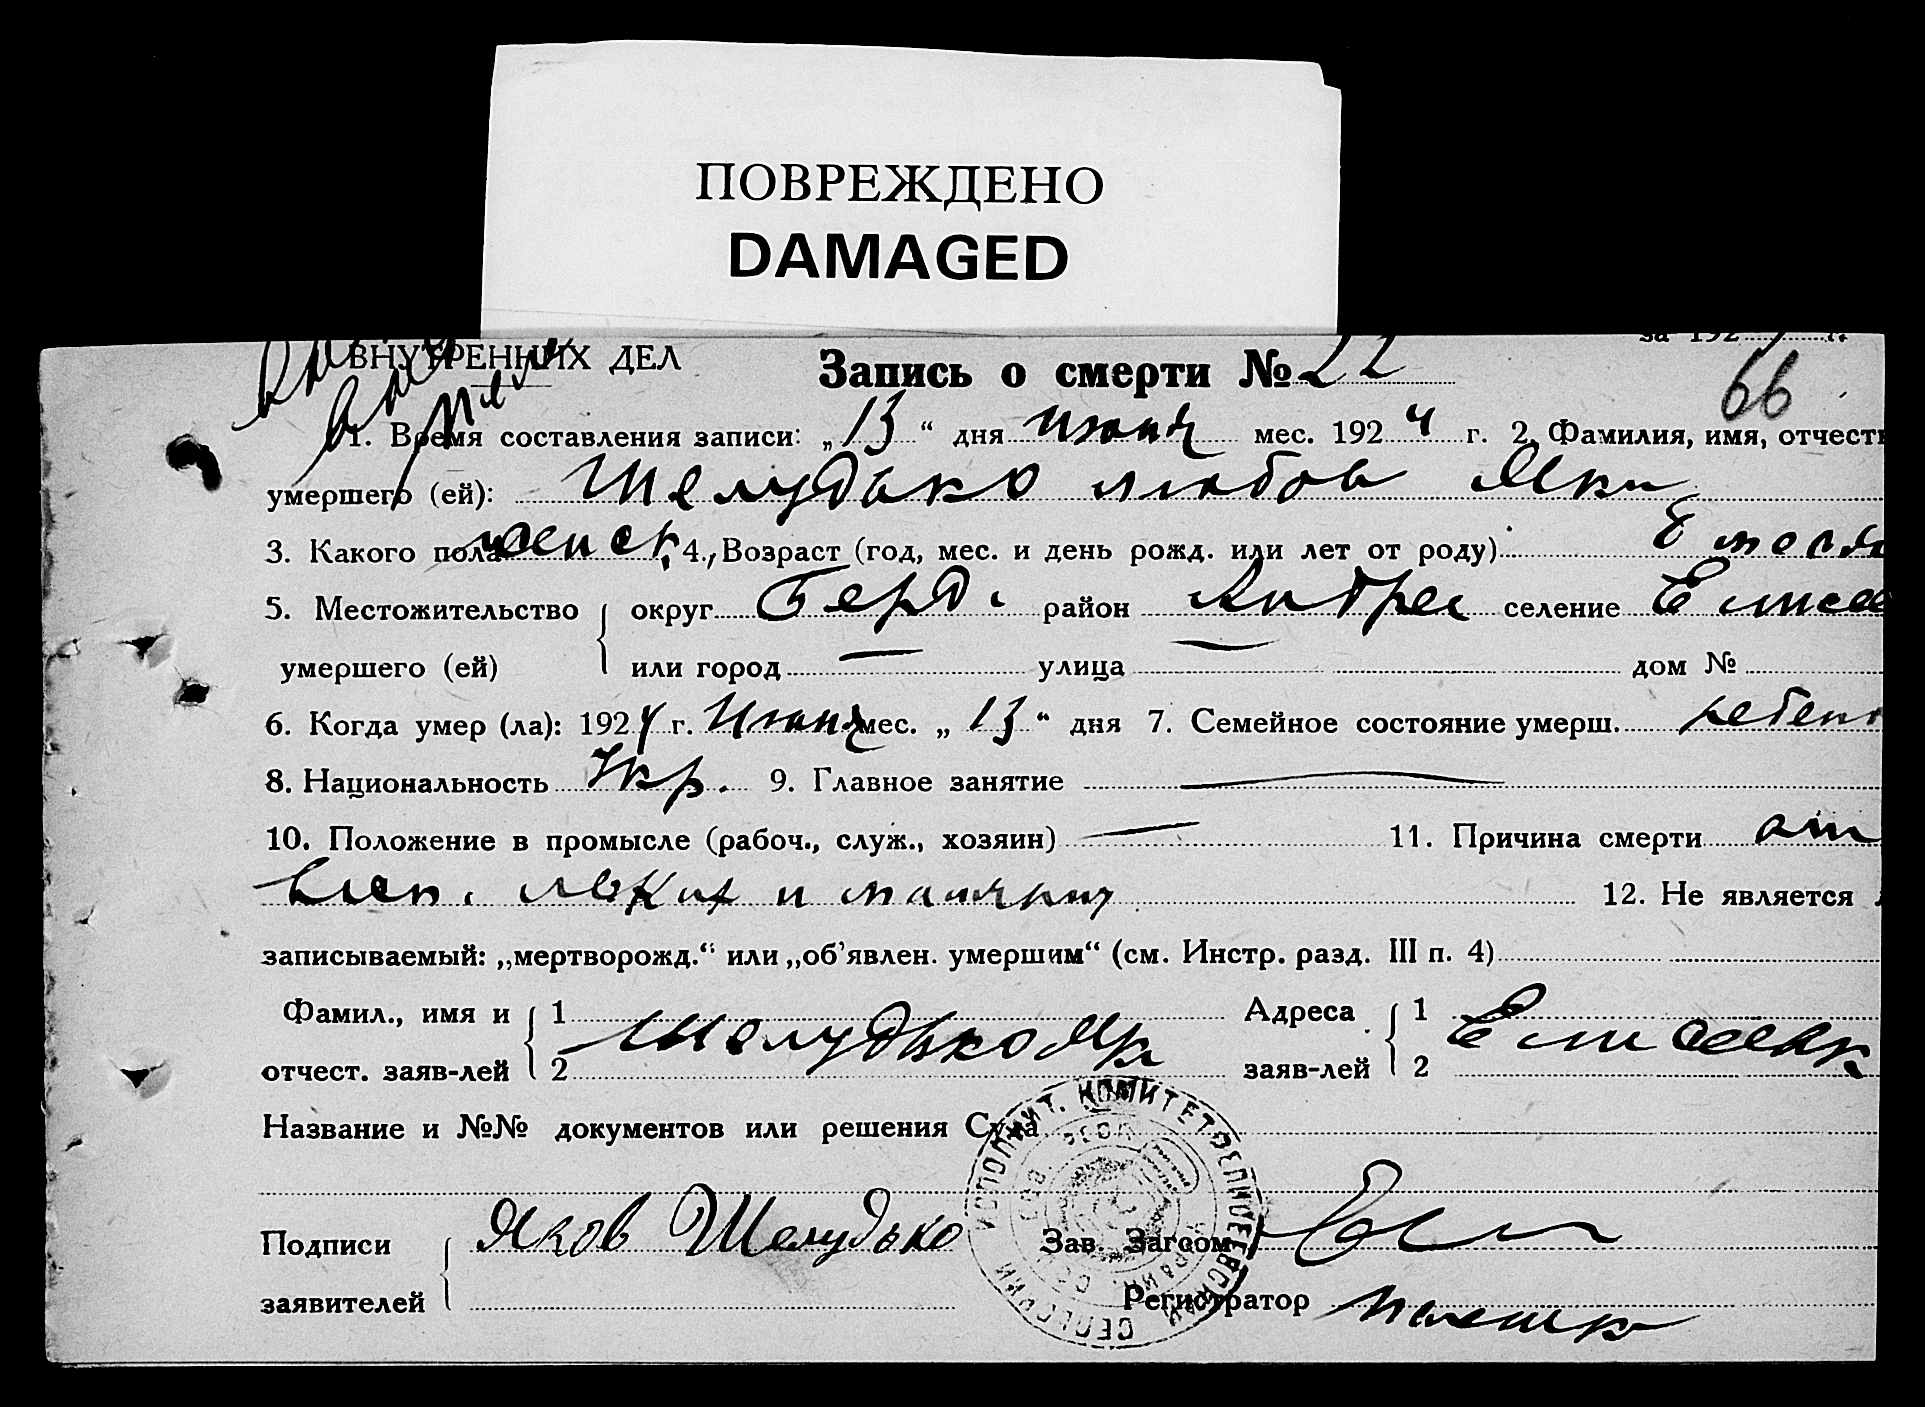 ПОВРЕЖДЕНО
DAMAGED
ВНУТРЕННИХ ДЕЛ
за 192 г.
Запись о смерти № 22
66
1. Время составления записи: „13“ дня июня мес. 1924 г. 2. Фамилия, имя, отчеств
умершего (ей): Шелудько Любовь Як
3. Какого пола женск. 4. Возраст (год, мес. и день рожд. или лет от роду) 8 меся
5. Местожительство округ Берд. район Андре селение Елисее
умершего (ей) или город — улица — дом №
6. Когда умер (ла): 1924 г. Июня мес. „13“ дня 7. Семейное состояние умерш. ребено
8. Национальность Укр. 9. Главное занятие —
10. Положение в промысле (рабоч., служ., хозяин) — 11. Причина смерти от
восп. легких и 12. Не является
записываемый: „мертворожд.“ или „об’явлен. умершим“ (см. Инстр. разд. III п. 4)
Фамил., имя и 1 Адреса 1
Шелудько Як Елисеевк
отчест. заяв-лей 2 заяв-лей 2
Название и №№ документов или решения Суда
Подписи Яков Шелудько Зав. Загсом
заявителей Регистратор
ИСПОЛНИТ. КОМИТЕТ ЕЛИСЕЕВСКИЙ СЕЛЬСКИЙ